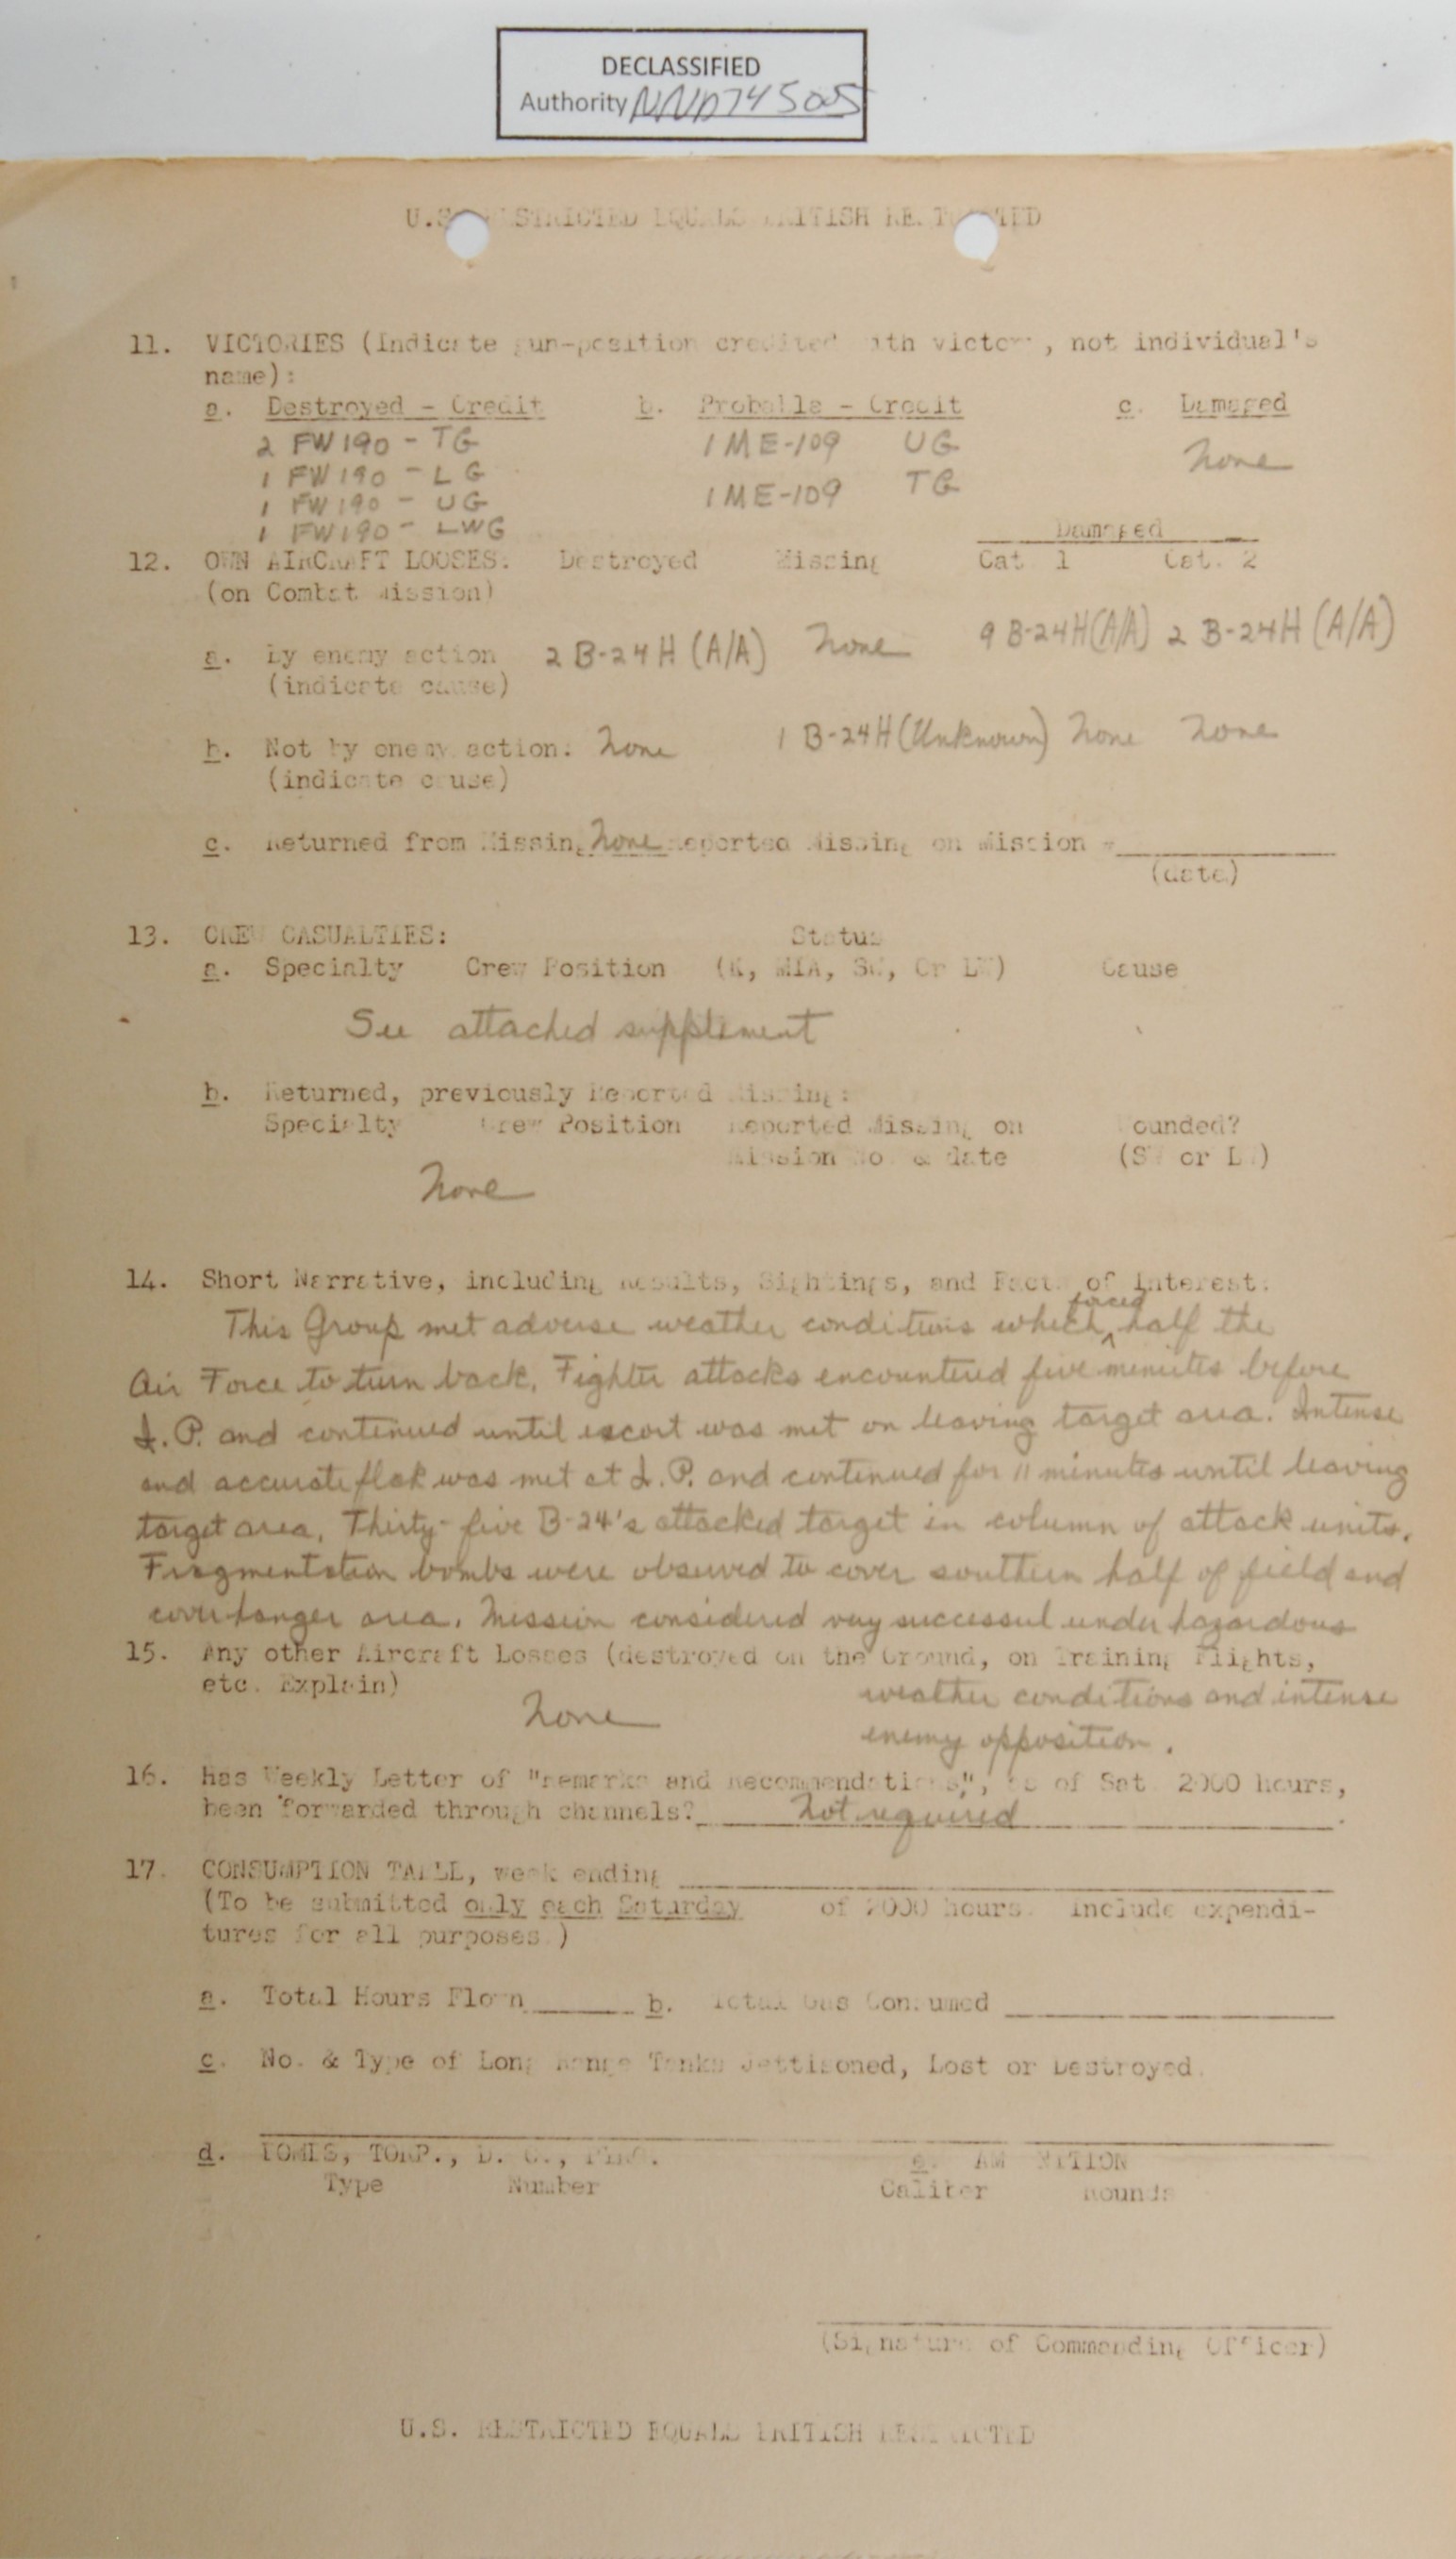 DECLASSIFIED
Authority NND745005
U.S. RESTRICTED EQUALS BRITISH RESTRICTED
11. VICTORIES (Indicate gun-position credited with victory, not individual's
name):
a. Destroyed - Credit b. Probable - Credit c. Damaged
2 FW190 - TG 1 ME-109 UG None
1 FW190 - LG 1 ME-109 TG
1 FW190 - UG
1 FW190 - LWG
Damaged
12. OWN AIRCRAFT LOOSES: Destroyed Missing Cat. 1 Cat. 2
(on Combat Mission)
a. By enemy action 2 B-24H (A/A) None 9 B-24H (A/A) 2 B-24H (A/A)
(indicate cause)
b. Not by enemy action. None 1 B-24H (Unknown) None None
(indicate cause)
c. Returned from Missing None Reported Missing on Mission
(date)
13. CREW CASUALTIES: Status
a. Specialty Crew Position (K, MIA, SW, Or LW) Cause
See attached supplement
b. Returned, previously Reported Missing:
Specialty Crew Position Reported Missing on Wounded?
Mission No. & date (SW or LW)
None
14. Short Narrative, including Results, Sightings, and Facts of Interest.
This Group met adverse weather conditions which forced half the
Air Force to turn back. Fighter attacks encountered five minutes before
I.P. and continued until escort was met on leaving target area. Intense
and accurate flak was met at I.P. and continued for 11 minutes until leaving
target area. Thirty-five B-24's attacked target in column of attack units.
Fragmentation bombs were observed to cover southern half of field and
cover hanger area. Mission considered very successul under hazardous
15. Any other Aircraft Losses (destroyed on the Ground, on Training Flights,
etc. Explain)
None weather conditions and intense
enemy opposition.
16. Has Weekly Letter of "Remarks and Recommendations", as of Sat. 2000 hours,
been forwarded through channels? Not required.
17. CONSUMPTION TABLE, week ending
(To be submitted only each Saturday of 2000 hours. Include expendi-
tures for all purposes.)
a. Total Hours Flown b. Total Gas Consumed
c. No. & Type of Long Range Tanks Jettisoned, Lost or Destroyed.
d. BOMBS, TORP., D. C., e. AMMUNITION
Type Number Caliber Rounds
(Signature of Commanding Officer)
U.S. RESTRICTED EQUALS BRITISH RESTRICTED